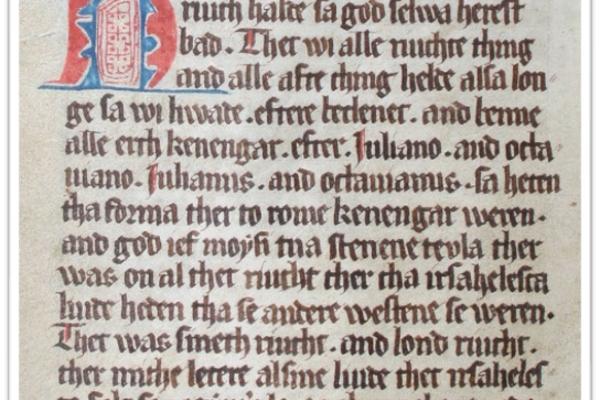 H riuch halde sa god selwa hereft
bad. Thet wi alle riuchte thing
and alle afte thing helde alsa lon
ge sa wi liwade. eftere kedenet. and kenne
alle erth kenengar. efter. Juliano. and octa
uiano. Julianus. and octauianus. sa heten
tha forma ther to rome kenengar weren.
and god ief moysi tua stenene tevla ther
was on al thet riucht ther tha irsahelesca
liude heden tha se andere westene se weren.
Thet was smeth riucht. and lond riucht.
ther mithe letere alsine liude thet irsaheles